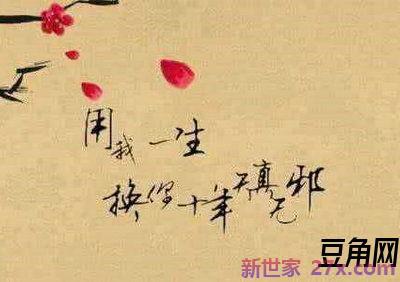 用我一生
换你十年天真无邪
豆角网
新世家 27x.com